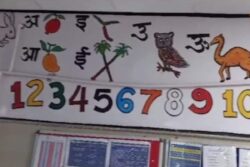 अ इ उ ऊ
आ ई
1 2 3 4 5 6 7 8 9 10